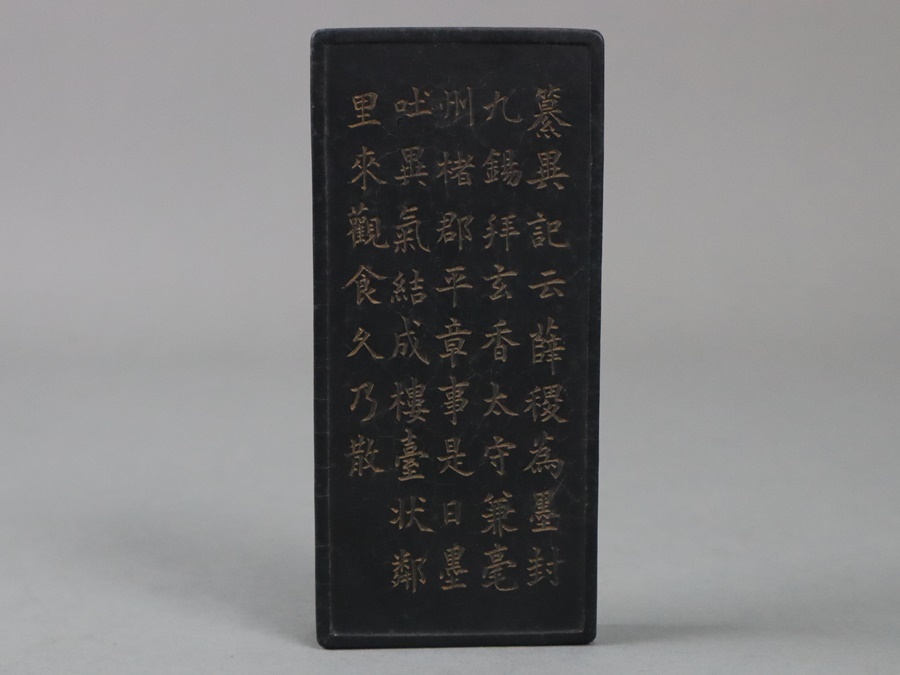 纂異記云薛稷為墨封
九錫拜玄香太守兼毫
州楮郡平章事是日墨
吐異氣結成樓臺狀鄰
里來觀食久乃散